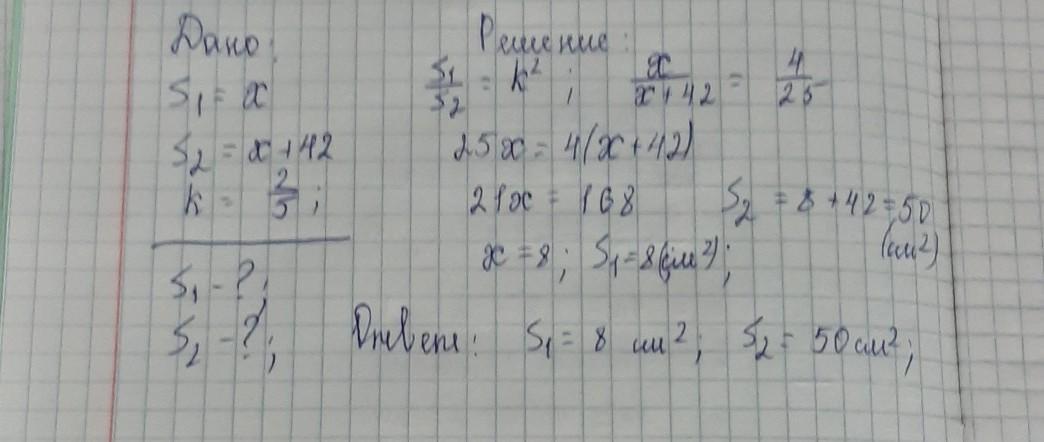 Дано:
S₁ = x
S₂ = x+42
k = 2/5;
S₁ - ?;
S₂ - ?;
Решение:
S₁/S₂ = k²; x/(x+42) = 4/25
25x = 4(x+42)
21x = 168
x = 8; S₁ = 8(см²);
S₂ = 8+42=50
(см²)
Ответ: S₁ = 8 см²; S₂ = 50 см²;